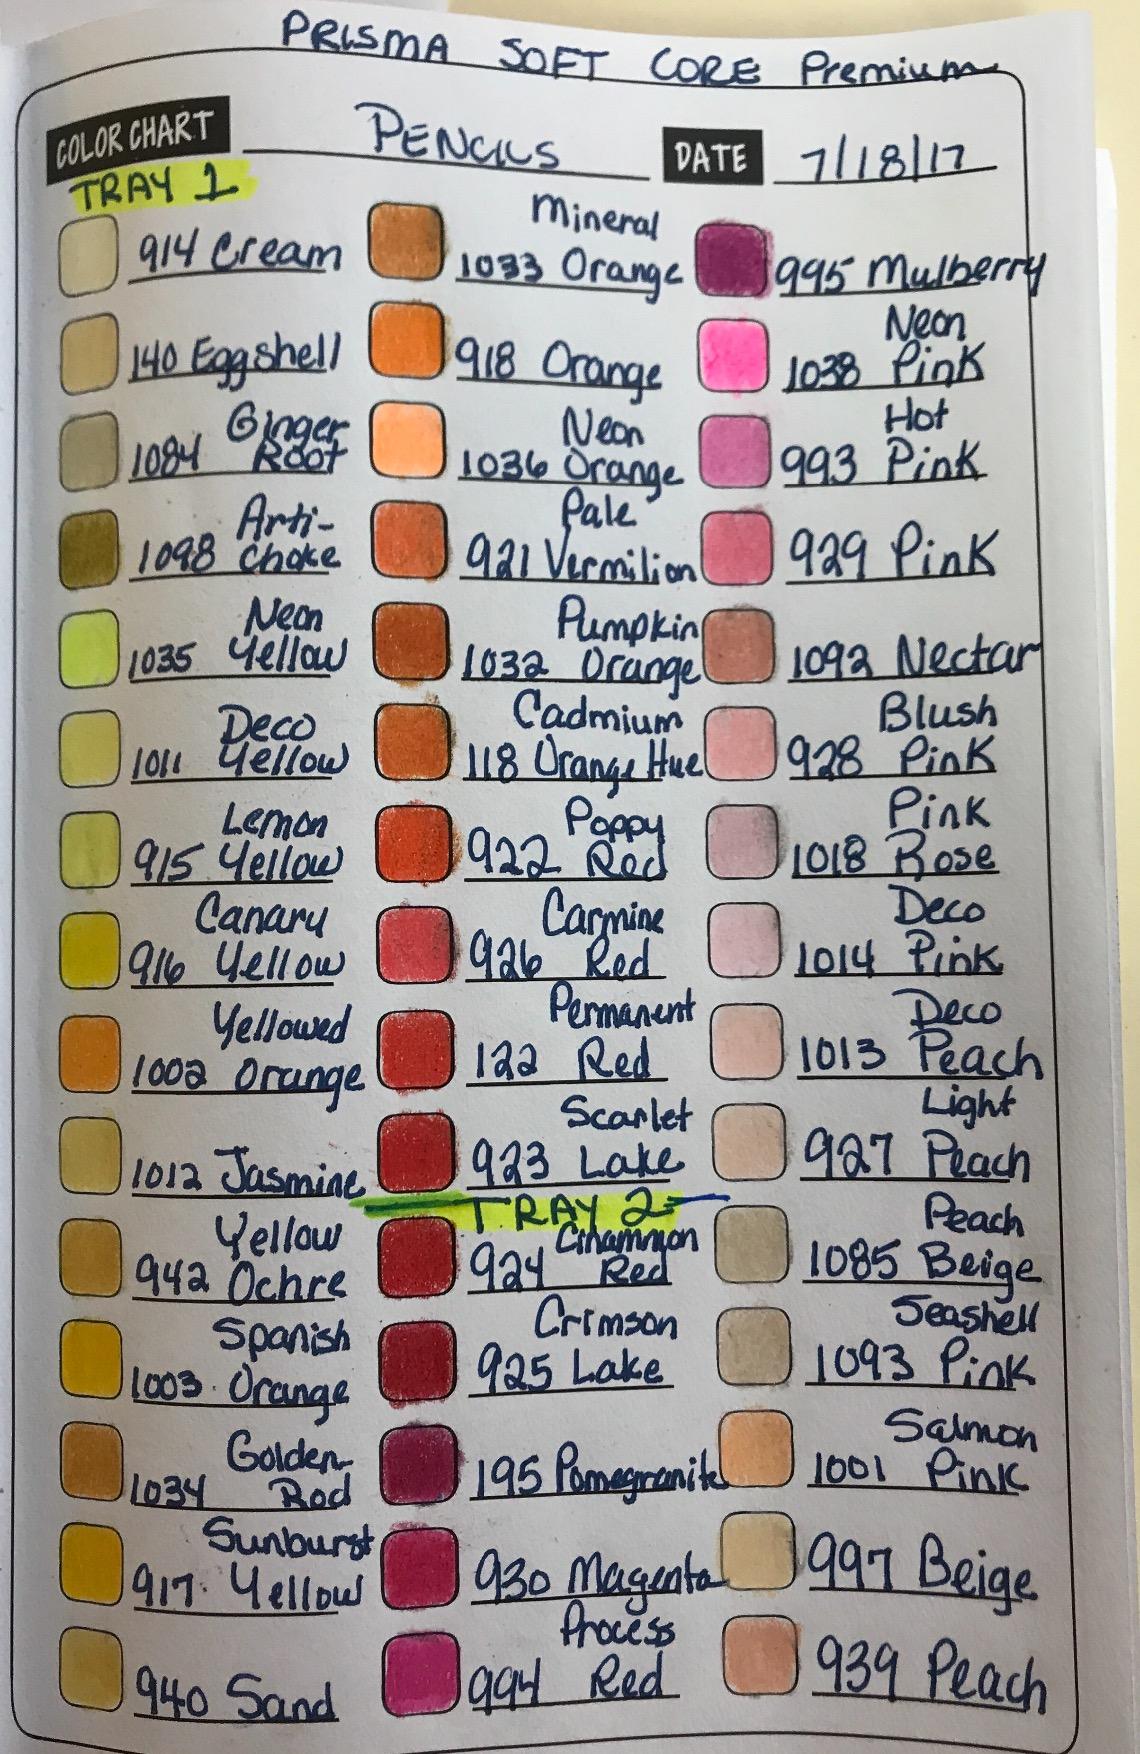 PRISMA SOFT CORE Premium
COLOR CHART PENCILS DATE 7/18/17
TRAY 1
914 Cream
140 Eggshell
Ginger
1084 Root
Arti-
1098 choke
Neon
1035 Yellow
Deco
1011 Yellow
Lemon
915 Yellow
Canary
916 Yellow
Yellowed
1002 Orange
1012 Jasmine
Yellow
942 Ochre
Spanish
1003. Orange
Golden-
1034 Rod
Sunburst
917. Yellow
940 Sand
Mineral
1033 Orange
918 Orange
Neon
1036 Orange
Pale
921 Vermilion
Pumpkin
1032 Orange
Cadmium
118 Orange Hue
Poppy
922 Red
Carmine
926 Red
Permanent
122 Red
Scarlet
923 Lake
TRAY 2
Cinammon
924 Red
Crimson
925 Lake
195 Pomegranite
930 Magenta
Process
994 Red
995 Mulberry
Neon
1038 Pink
Hot
993 Pink
929 Pink
1092 Nectar
Blush
928 Pink
Pink
1018 Rose
Deco
1014 Pink
Deco
1013 Peach
Light
927 Peach
Peach
1085 Beige
Seashell
1093 Pink
Salmon
1001 Pink
997 Beige
939 Peach